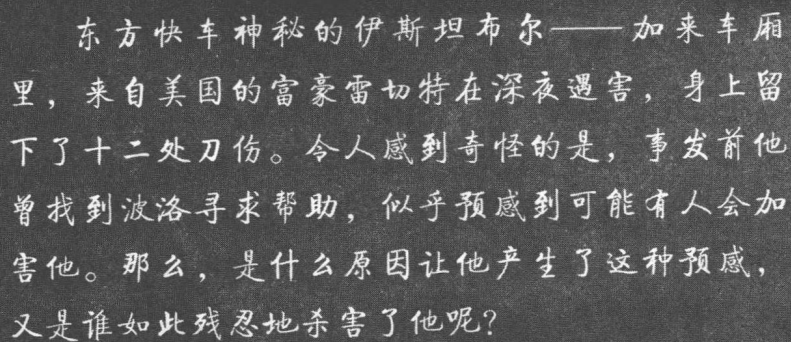 东方快车神秘的伊斯坦布尔——加来车厢
里，来自美国的富豪雷切特在深夜遇害，身上留
下了十二处刀伤。令人感到奇怪的是，事发前他
曾找到波洛寻求帮助，似乎预感到可能有人会加
害他。那么，是什么原因让他产生了这种预感，
又是谁如此残忍地杀害了他呢？